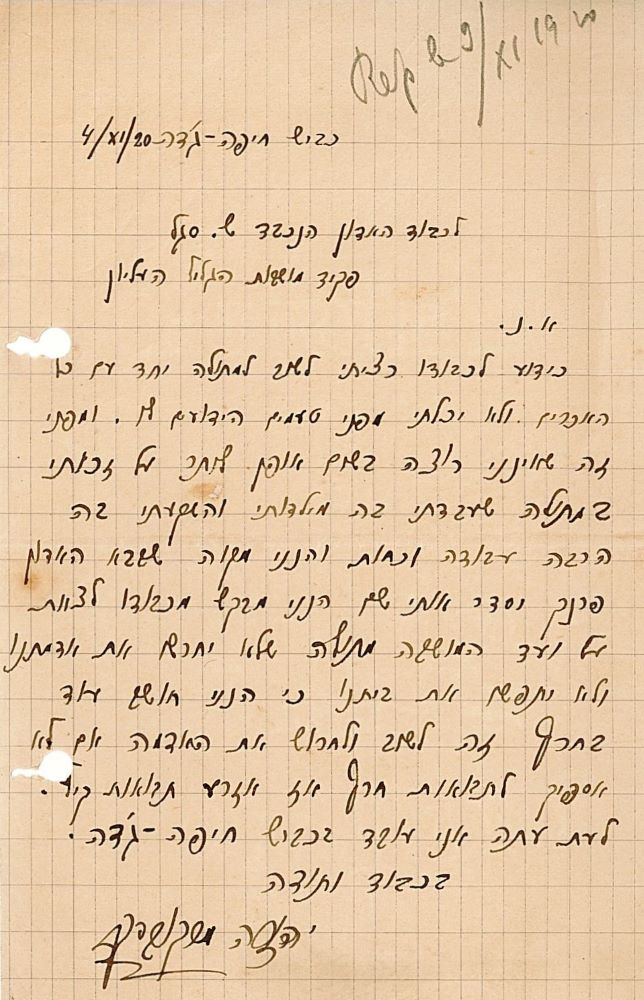 Rep le 9/XI 19 20
כביש חיפה-ג'דה 4/XI/20
לכבוד האדון הנכבד ש. סגל
פקיד מושבות הגליל העליון
א. נ.
כידוע לכבודו רציתי לשוב למתולה יחד עם כל
האכרים ולא יכלתי מפני טעמים הידועים לו. ומפני
זה שאינני רוצה בשום אופן לותר על זכותי
במתולה שעבדתי בה מילדותי והשקעתי בה
הרבה עבודה וכחות והנני מקוה שיבא האדון
פרנק וסדר אותי שם הנני מבקש מכבודו לצאת
על ועד המושבה מתולה שלא יחרשו את אדמתנו
ולא יתפשו את ביתנו כי הנני חושב עוד
בחרף זה לשוב ולחרוש את האדמה אם לא
אספיק לתבואות חרף אז אזרע תבואות קיץ.
לעת עתה אני עובד בכביש חיפה-ג'דה.
בכבוד ותודה
יהודה